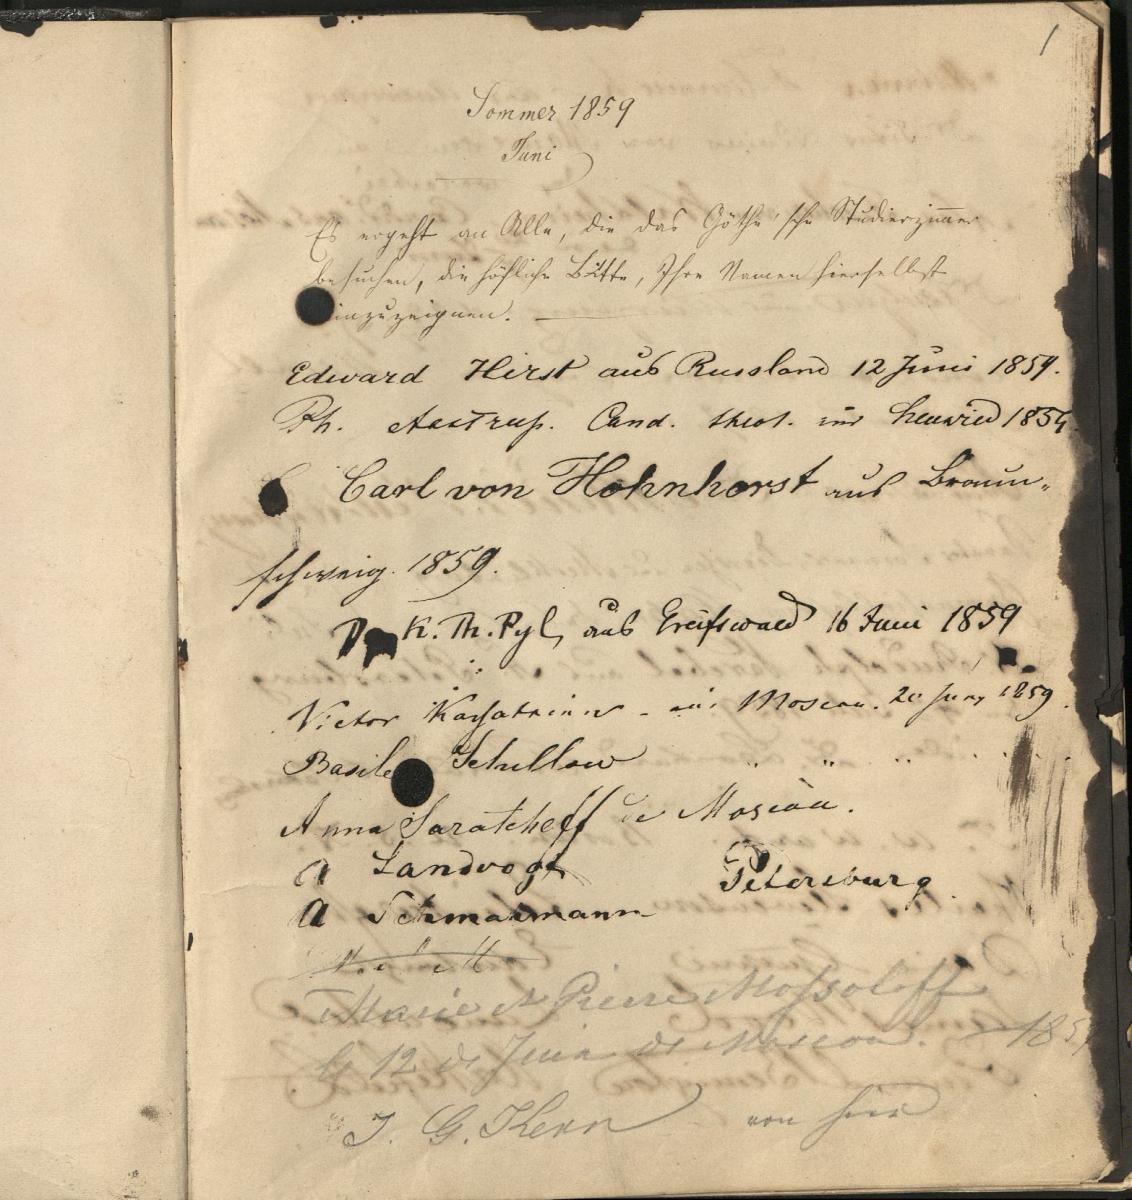 1
Sommer 1859
Juni
Es ergeht an Alle, die das Göthe'sche Studierzimmer
besuchen, die höfliche Bitte, Ihre Namen hierselbst
einzuzeignen.
Edward Hirst aus Russland 12 Juni 1859.
Ph. Cand. theol. 1859
Carl von Hohnhorst aus Braun-
schweig. 1859.
Dr K. Th. Pyl, aus Greifswald 16 Juni 1859
Victor Moscou. 20 Juny 1859.
Basile Schillow " " " "
Anna Saratcheff de Moscou.
A Landvogt Petersburg
A
Marie & Pierre Mossoloff
le 12 de Juin de Moscou. 1859
J. G. Kern von hier